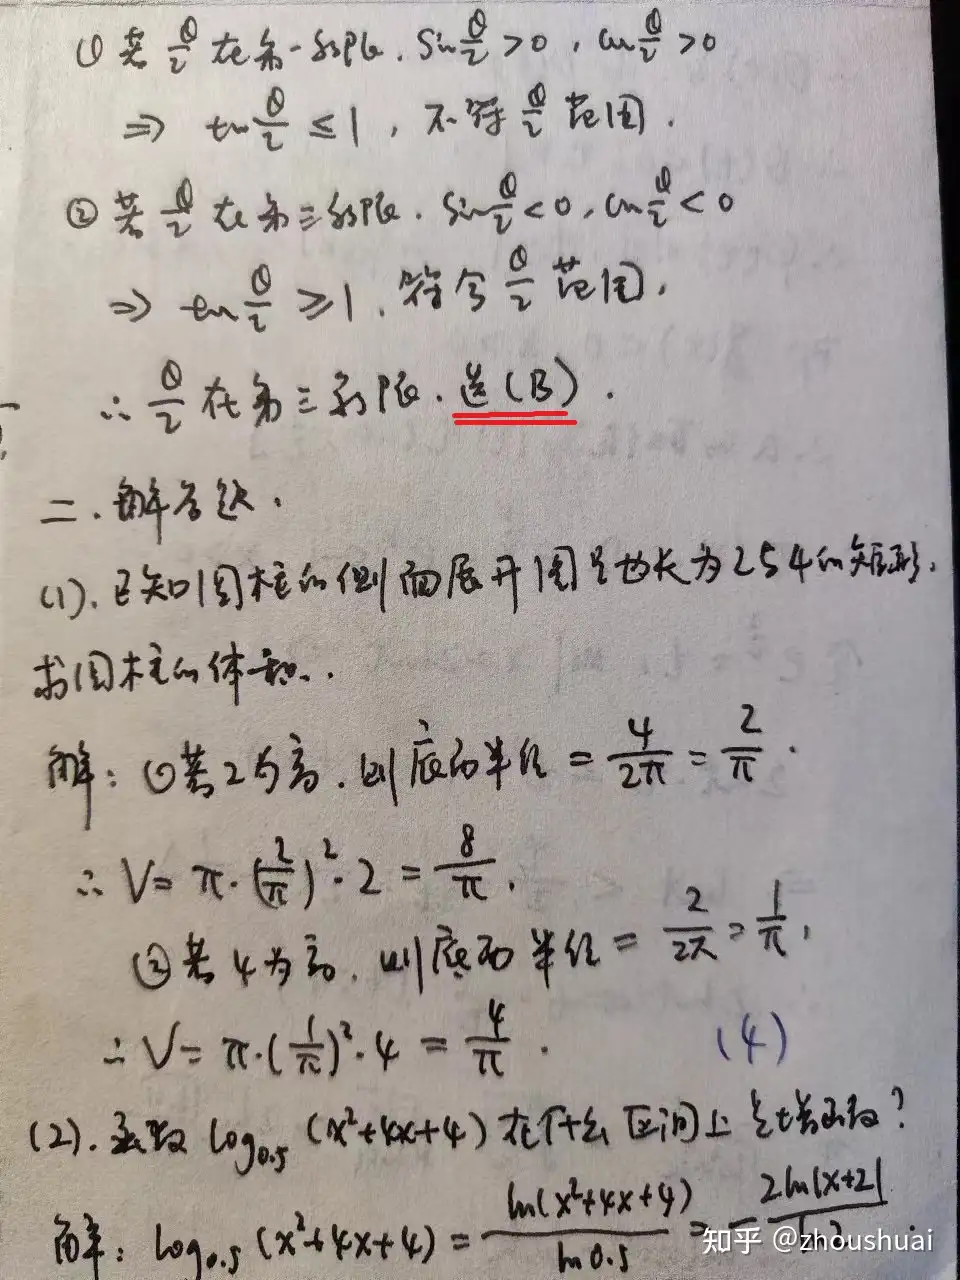 ① 若 θ/2 在第一象限. sin θ/2 > 0, cos θ/2 > 0
⇒ tan θ/2 ≤ 1, 不符 θ/2 范围.
② 若 θ/2 在第三象限. sin θ/2 < 0, cos θ/2 < 0
⇒ tan θ/2 ≥ 1, 符合 θ/2 范围.
∴ θ/2 在第三象限. 选(B).
二. 解答题.
(1). 已知圆柱的侧面展开图是边长为2与4的矩形.
求圆柱的体积..
解: ①若2为高, 则底面半径 = 4/2π = 2/π.
∴ V = π·(2/π)²·2 = 8/π.
②若4为高, 则底面半径 = 2/2π = 1/π,
∴ V = π·(1/π)²·4 = 4/π. (4)
(2). 函数 log₀.₅ (x²+4x+4) 在什么区间上是增函数?
解: log₀.₅ (x²+4x+4) = ln(x²+4x+4)/ln0.5 = - 2ln|x+2|/ln2
知乎 @zhoushuai